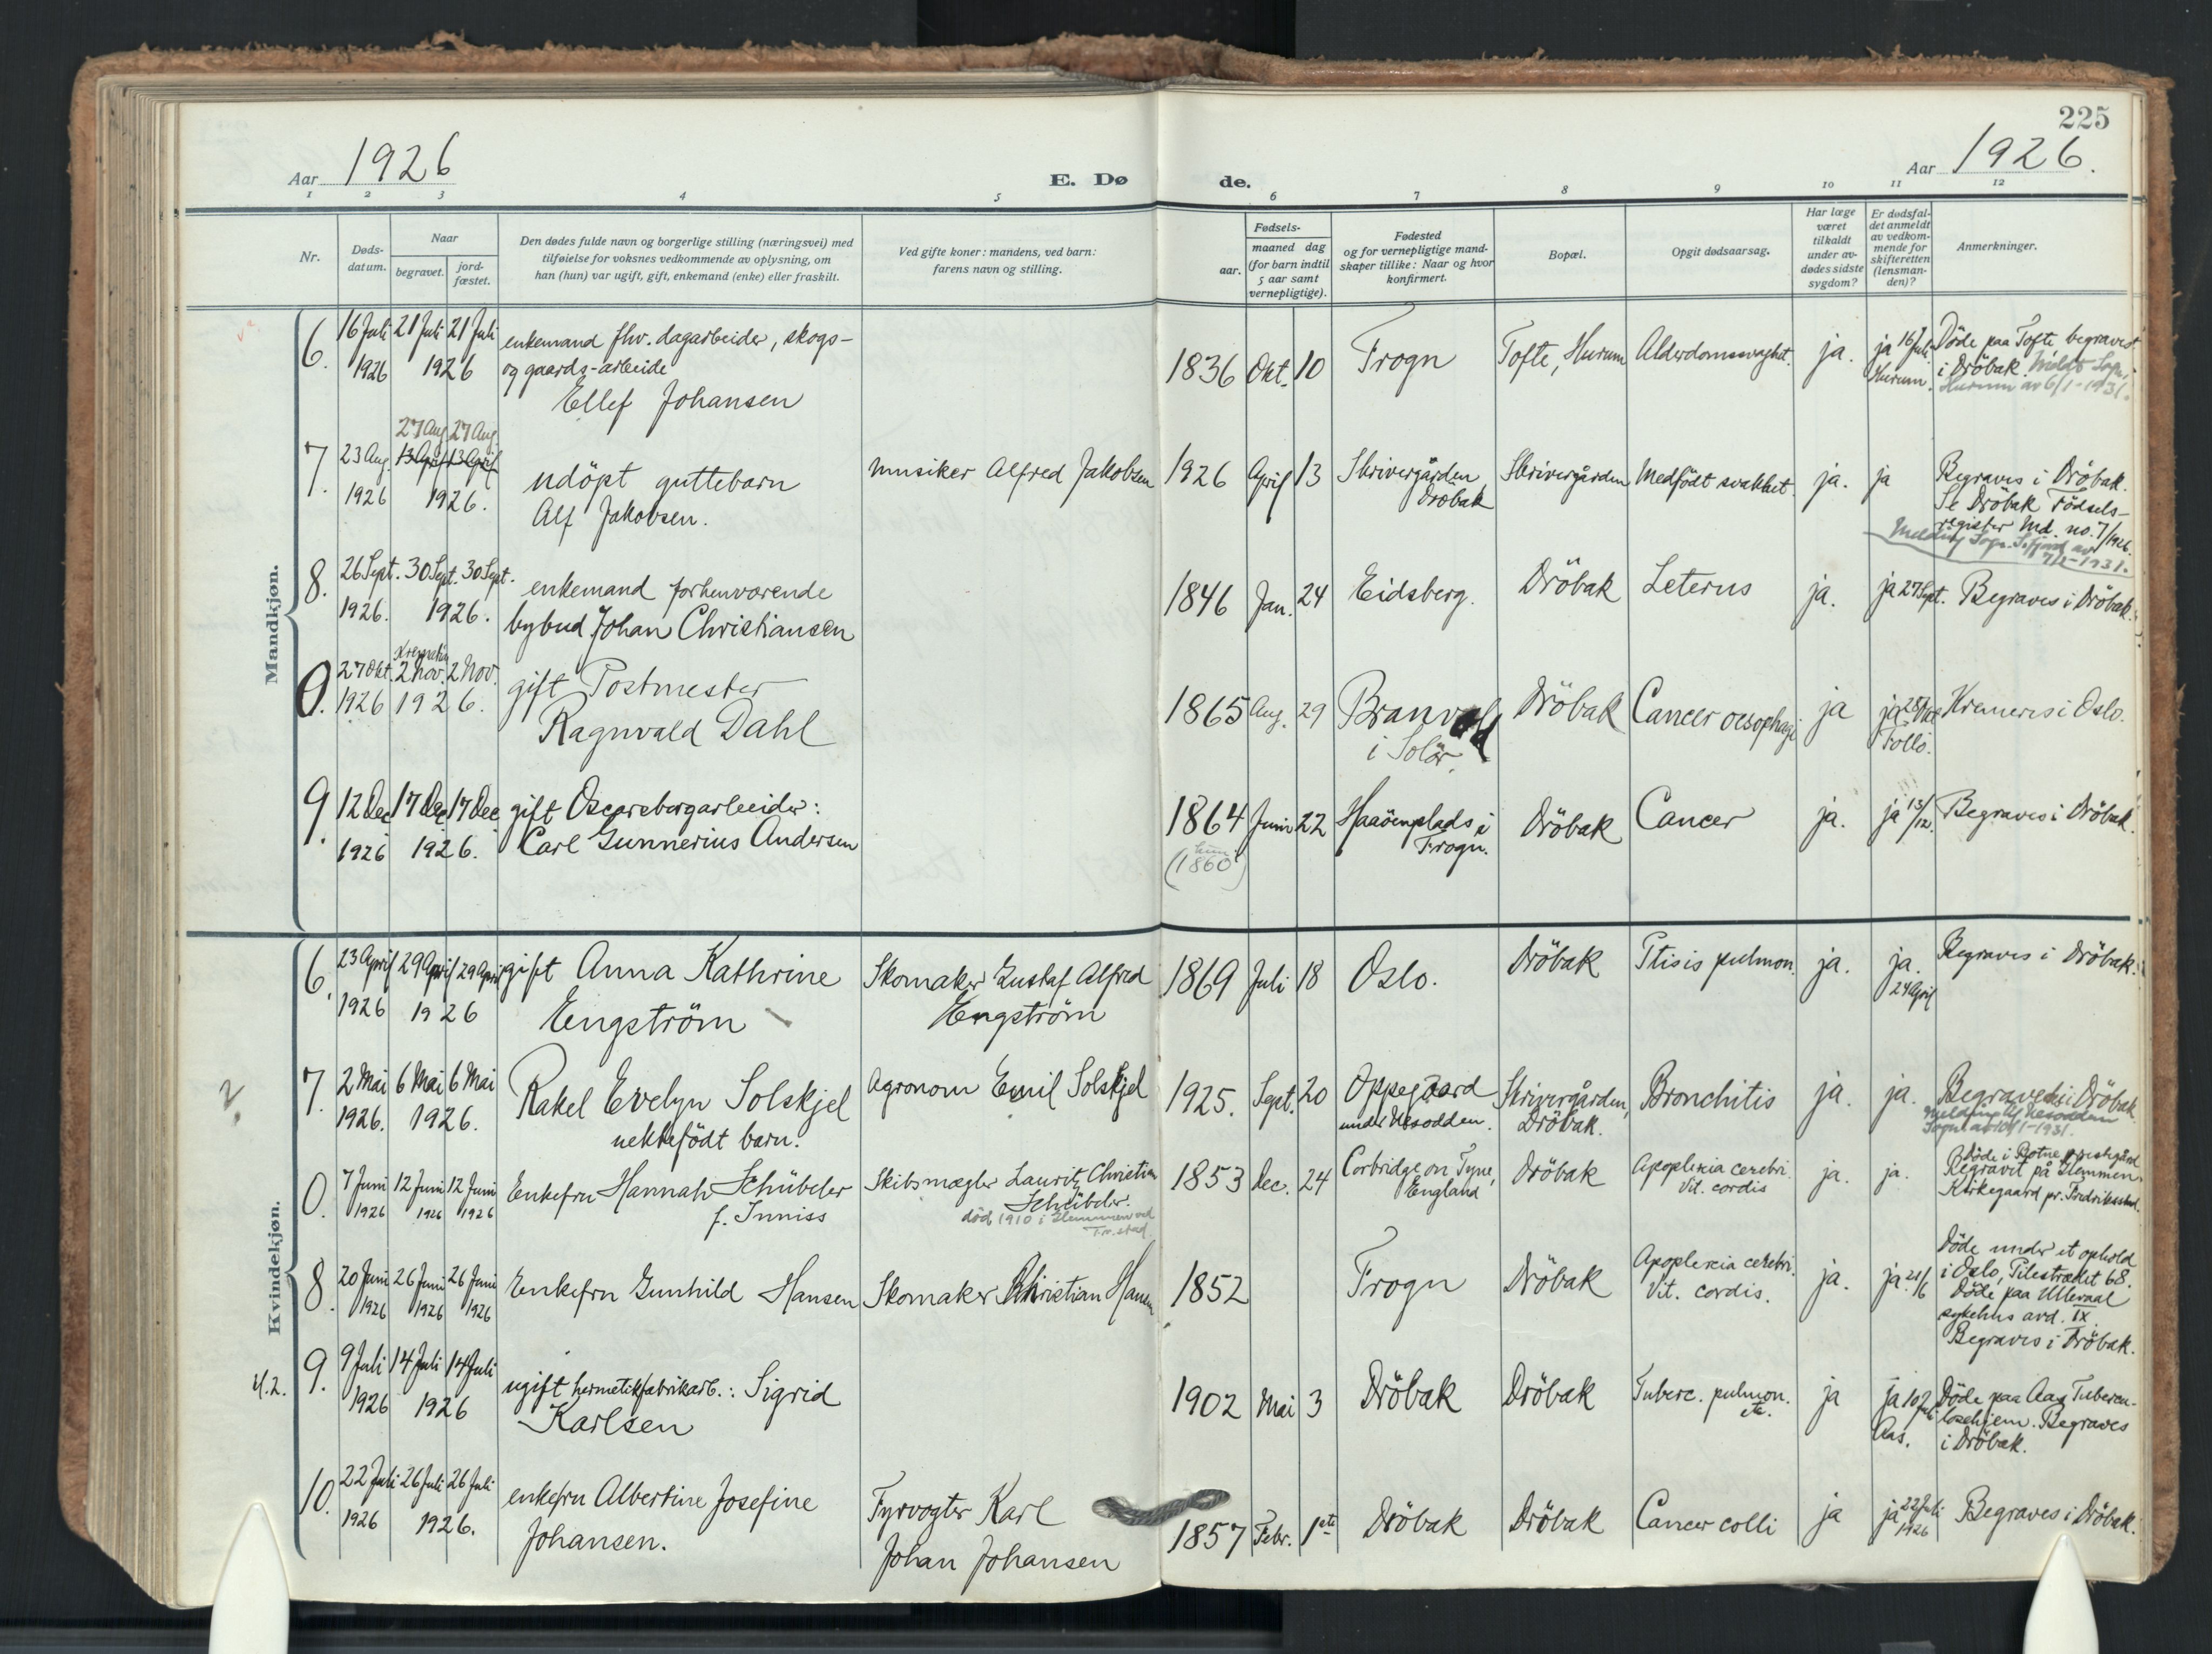 225
Aar 1926
E. Dø
de.
Aar 1926.
1 2 3 4 5 6 7 8 9 10 11 12
Nr.
Døds-
datum.
Naar
begravet.
jord-
fæstet.
Den dødes fulde navn og borgerlige stilling (næringsvei) med
tilføielse for voksnes vedkommende av oplysning, om
han (hun) var ugift, gift, enkemand (enke) eller fraskilt.
Ved gifte koner: mandens, ved barn:
farens navn og stilling.
Fødsels-
aar.
maaned dag
(for barn indtil
5 aar samt
vernepligtige).
Fødested
og for vernepligtige mand-
skaper tillike: Naar og hvor
konfirmert.
Bopæl.
Opgit dødsaarsag.
Har læge
været
tilkaldt
under av-
dødes sidste
sygdom?
Er dødsfal-
det anmeldt
av vedkom-
mende for
skifteretten
(lensman-
den)?
Anmerkninger.
Mandkjøn.
6.
16 Juli
1926
21 Juli 21 Juli
1926
enkemand fhv. dagarbeider, skogs-
og gaards-arbeide
Ellef Johansen
1836 Okt. 10
Frogn
Tofte, Hurum
Alderdomssvaghet.
ja.
ja 16 Juli
Hurum.
Döde paa Tofte begravet
i Dröbak. Meldt Sogn.
Hurum av 6/1-1931.
7.
23 Aug.
1926
27 Aug. 27 Aug.
13 April 13 April
1926.
udöpt guttebarn
Alf Jakobsen.
Musiker Alfred Jakobsen
1926 April 13
Skrivergården,
Dröbak
Skrivergården
Medfödt svakhet.
ja.
ja
Begraves i Dröbak.
Se Dröbak Födsels-
register Md. no. 7/1926.
Melding Sogn. av
7/1-1931.
8.
26 Sept.
1926.
30 Sept. 30 Sept.
1926.
enkemand forhenværende
bybud Johan Christiansen
1846 Jan. 24
Eidsberg.
Dröbak
Leterus
ja.
ja 27 Sept.
Begraves i Dröbak.
0.
27 Okt.
1926
Kremation
2 Nov. 2 Nov.
1926.
gift Postmester
Ragnvald Dahl
1865 Aug. 29
Branvold
i Solör.
Dröbak
Cancer oesophagi
ja
ja 28 Okt
Follo.
Kremeres i Oslo.
9.
12 Dec
1926
17 Dec 17 Dec
1926.
gift Oscarsborgarbeider:
Carl Gunnerius Andersen
1864 Juni 22
(1860)
Haaöenplads i
Frogn.
Dröbak
Cancer
ja.
ja 13/12.
Begraves i Dröbak.
Kvindekjøn.
6.
23 April
1926
29 April 29 April
1926
gift Anna Kathrine
Engström
Skomaker Gustaf Alfred
Engström
1869 Juli 18
Oslo.
Dröbak
Ptisis pulmon.
ja.
ja.
24 April
Begraves i Dröbak.
?
7.
2 Mai
1926.
6 Mai 6 Mai
1926.
Rakel Evelyn Solskjel
uektefödt barn.
Agronom Emil Solskjel
1925. Sept. 20
Oppegaard
under Nesodden.
Skrivergården,
Dröbak.
Bronchitis
ja.
ja.
Begravedes i Dröbak
Melding til Nesodden
Sogn av 10/1-1931.
0.
7 Juni
1926
12 Juni 12 Juni
1926 1926
Enkefru Hannah Schübeler
f. Inniss
Skibsmægler Lauritz Christian
Schübeler.
död 1910 i Glemmen ved
Fr. stad.
1853 Dec. 24
Corbridge on Tyne,
England
Dröbak
Apoplexia cerebri
Vit. cordis
ja.
ja.
Döde i Botne prestegård
Begravet på Glemmen
Kirkegaard pr. Fredrikstad.
8.
20 Juni
1926
26 Juni 26 Juni
1926 1926
Enkefru Gunhild Hansen
Skomaker Christian Hansen
1852
Frogn
Dröbak
Apoplexia cerebri.
Vit. cordis.
ja.
ja 21/6
Döde under et ophold
i Oslo, Pilestrædet 68.
Döde paa Ulleraal
sykehus avd. IX.
Begraves i Dröbak.
9.
9 Juli
1926
14 Juli 14 Juli
1926
ugift hermetikfabrikarb.: Sigrid
Karlsen
1902 Mai 3
Dröbak
Dröbak
Tuberc. pulmon.
etc.
ja
ja 10 Juli
Aas.
Döde paa Aas Tubercu-
losehjem. Begraves
i Dröbak.
10.
22 Juli
1926
26 Juli 26 Juli
1926.
enkefru Albertine Josefine
Johansen.
Fyrvogter Karl
Johan Johansen
1857 Febr. 1ste
Dröbak
Dröbak
Cancer colli
ja
ja 22 Juli
1926
Begraves i Dröbak.